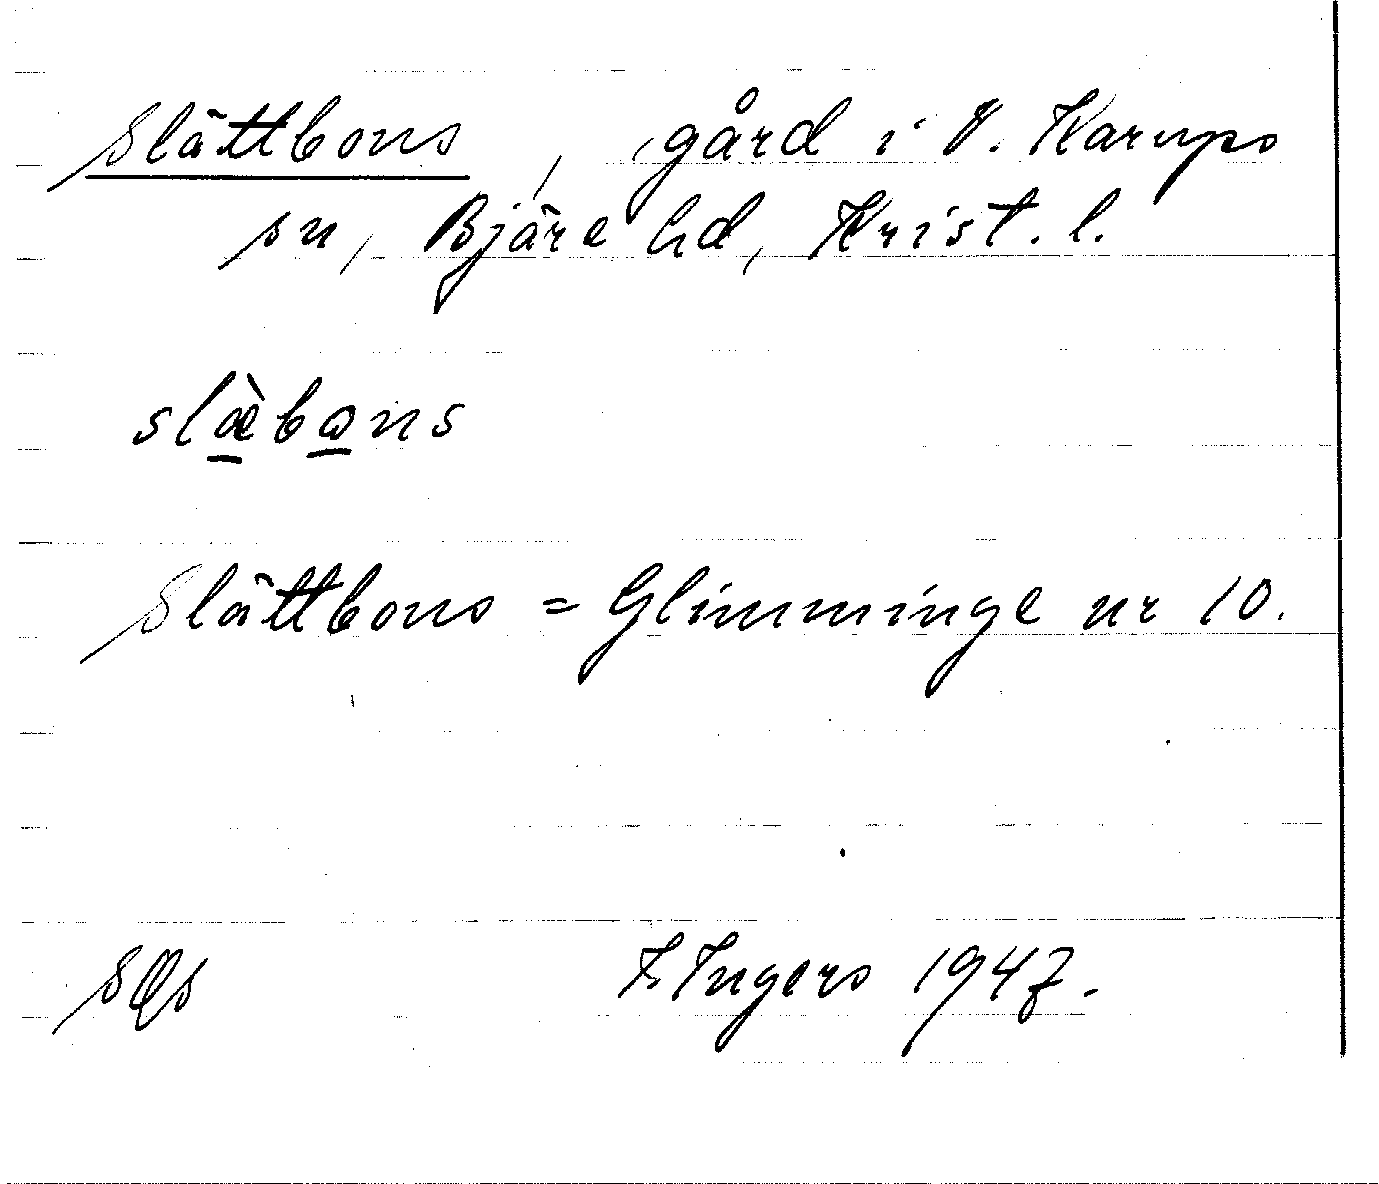 Slättbons, gård i V. Karups
sn, Bjäre hd, Krist. l.
slæ̀bons
Slättbons = Glimminge nr 10.
I. Ingers 1947.